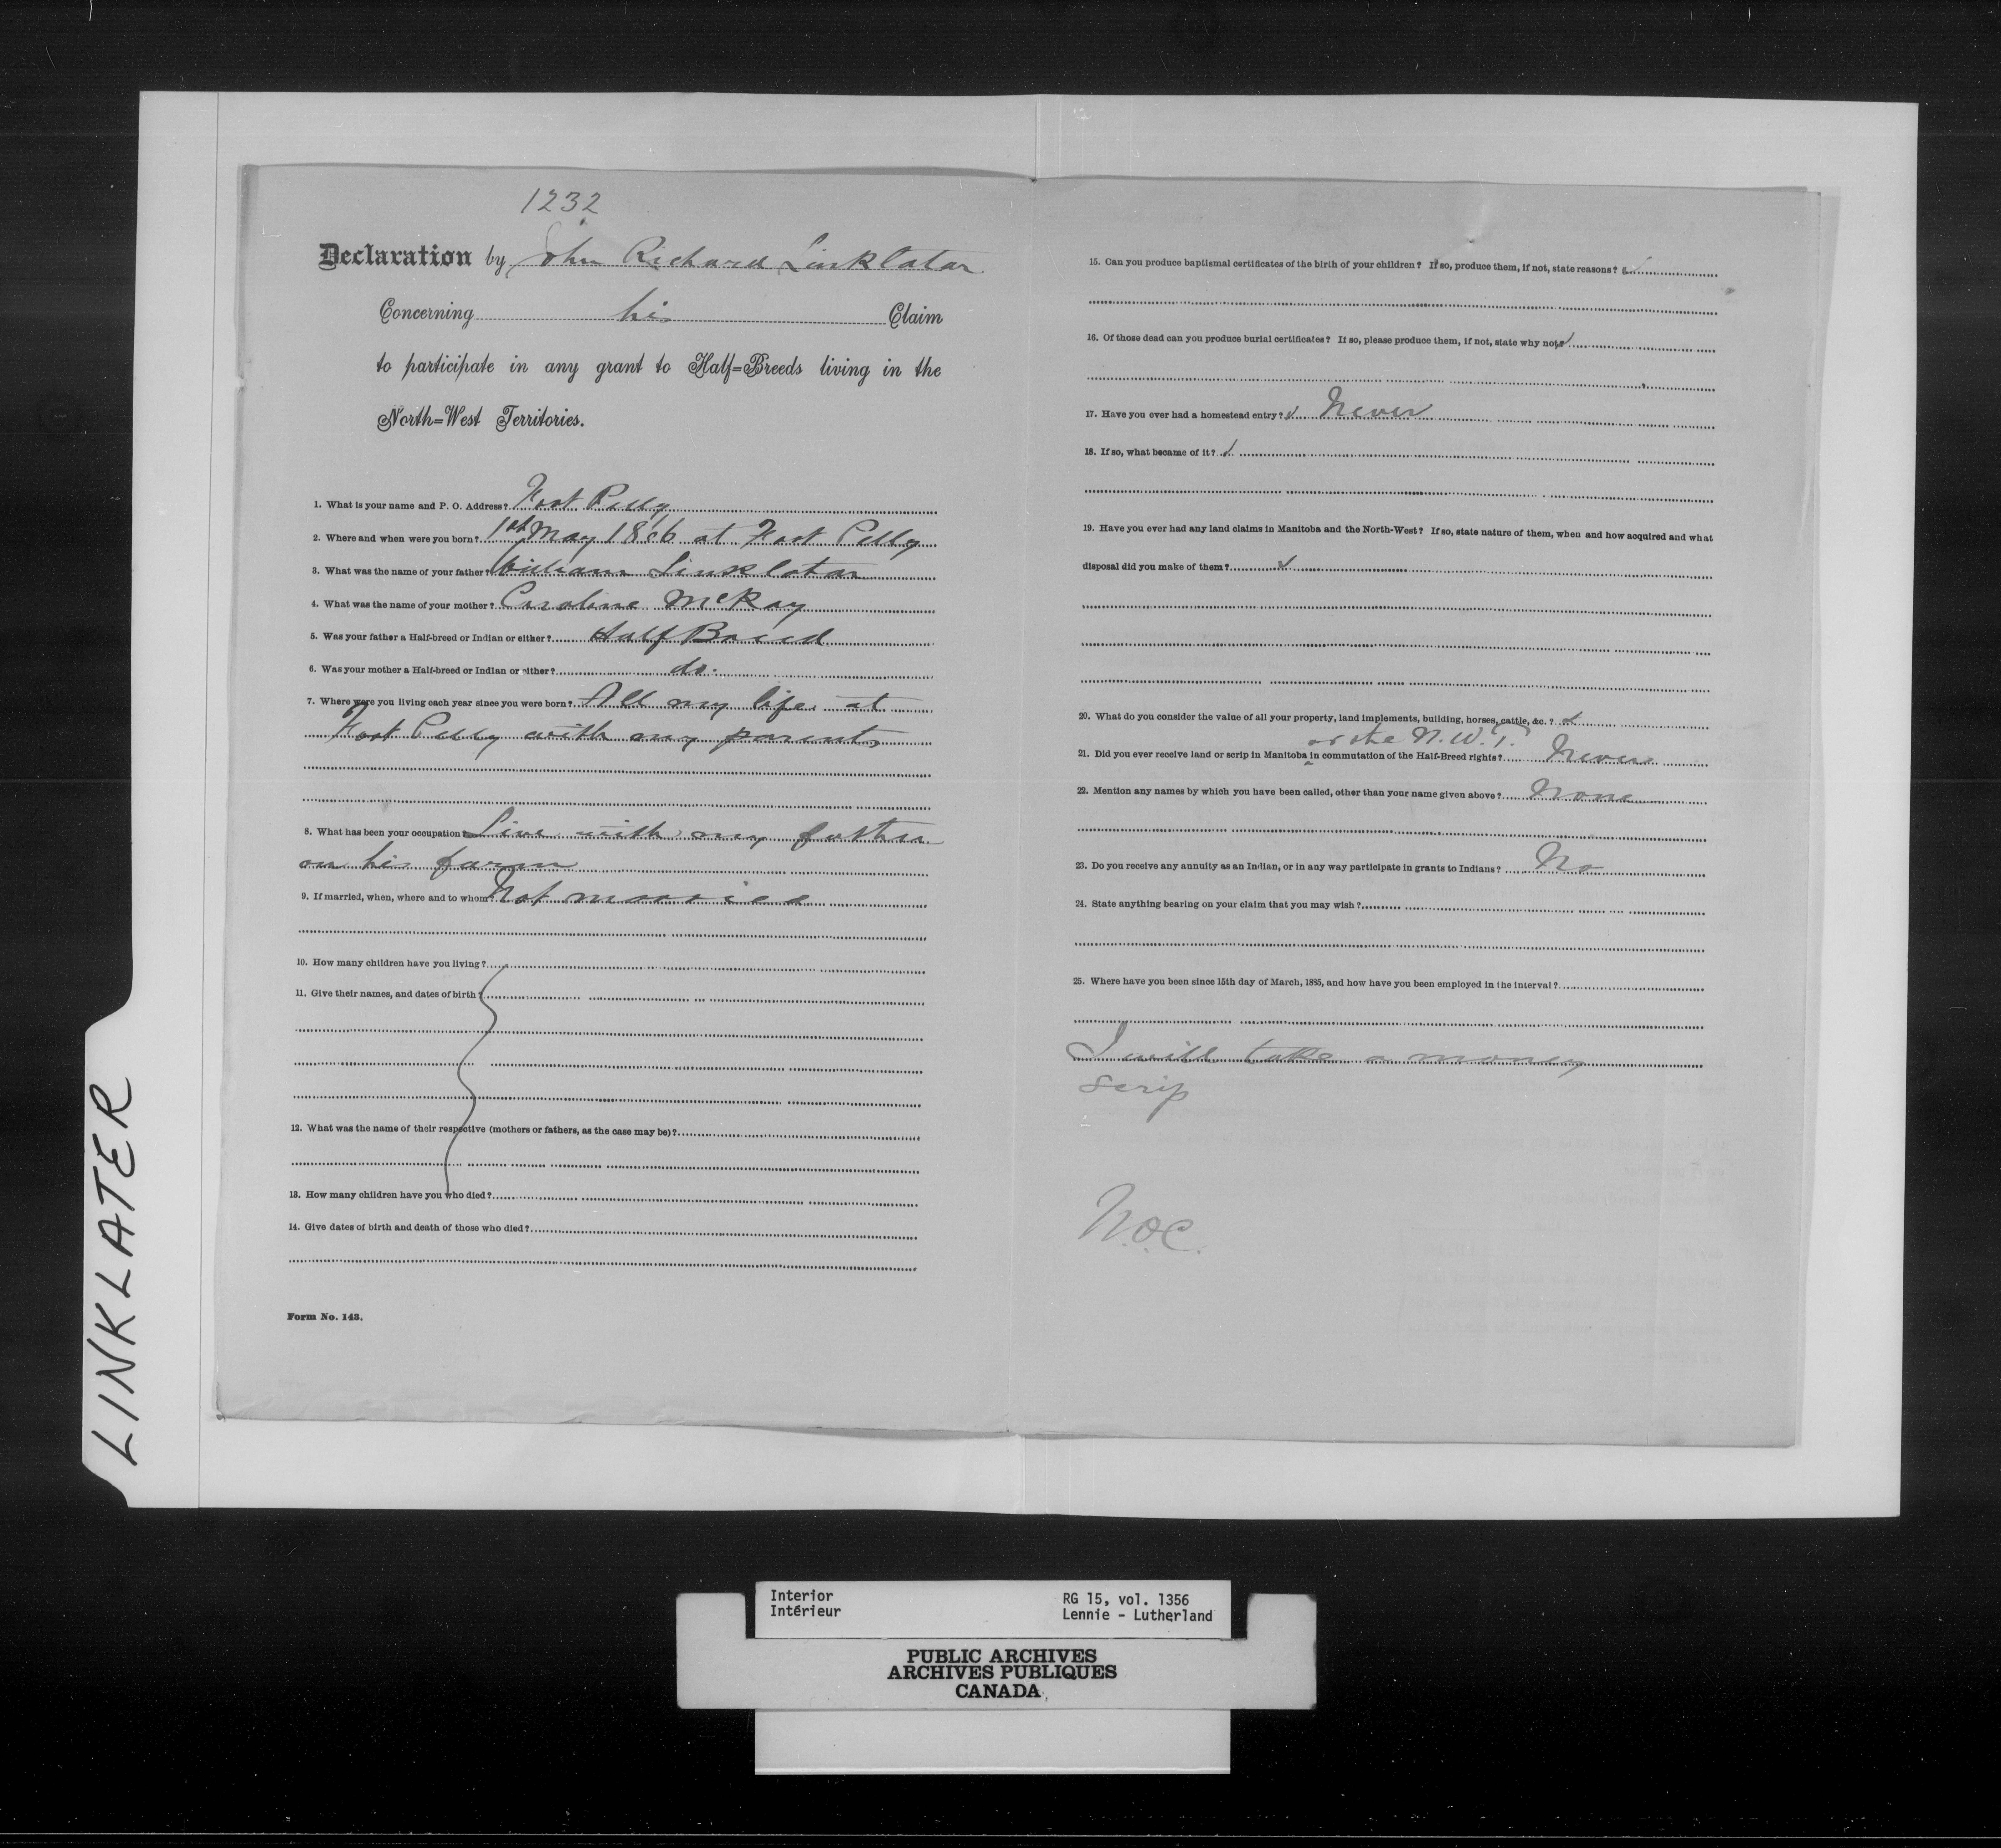 1232
Declaration by John Richard Linklater
Concerning his Claim
to participate in any grant to Half=Breeds living in the
North=West Territories.
1. What is your name and P. O. Address? Fort Pelly
2. Where and when were you born? 1st May 1866 at Fort Pelly
3. What was the name of your father? William Linklater
4. What was the name of your mother? Caroline McKay
5. Was your father a Half-breed or Indian or either? Half Breed
6. Was your mother a Half-breed or Indian or either? do.
7. Where were you living each year since you were born? All my life at
Fort Pelly with my parents
8. What has been your occupation? Live with my father
on his farm
9. If married, when, where and to whom? Not married
10. How many children have you living?
11. Give their names, and dates of birth?
12. What was the name of their respective (mothers or fathers, as the case may be)?
13. How many children have you who died?
14. Give dates of birth and death of those who died?
Form No. 143.
15. Can you produce baptismal certificates of the birth of your children? If so, produce them, if not, state reasons?
16. Of those dead can you produce burial certificates? If so, please produce them, if not, state why not?
17. Have you ever had a homestead entry? Never
18. If so, what became of it?
19. Have you ever had any land claims in Manitoba and the North-West? If so, state nature of them, when and how acquired and what
disposal did you make of them?
20. What do you consider the value of all your property, land implements, building, horses, cattle, &c.?
or the N.W.T.
21. Did you ever receive land or scrip in Manitoba in commutation of the Half-Breed rights? Never
22. Mention any names by which you have been called, other than your name given above? None
23. Do you receive any annuity as an Indian, or in any way participate in grants to Indians? No
24. State anything bearing on your claim that you may wish?
25. Where have you been since 15th day of March, 1885, and how have you been employed in the interval?
I will take a money
scrip
N.O.C.
LINKLATER
Interior
Intérieur
RG 15, vol. 1356
Lennie - Lutherland
PUBLIC ARCHIVES
ARCHIVES PUBLIQUES
CANADA